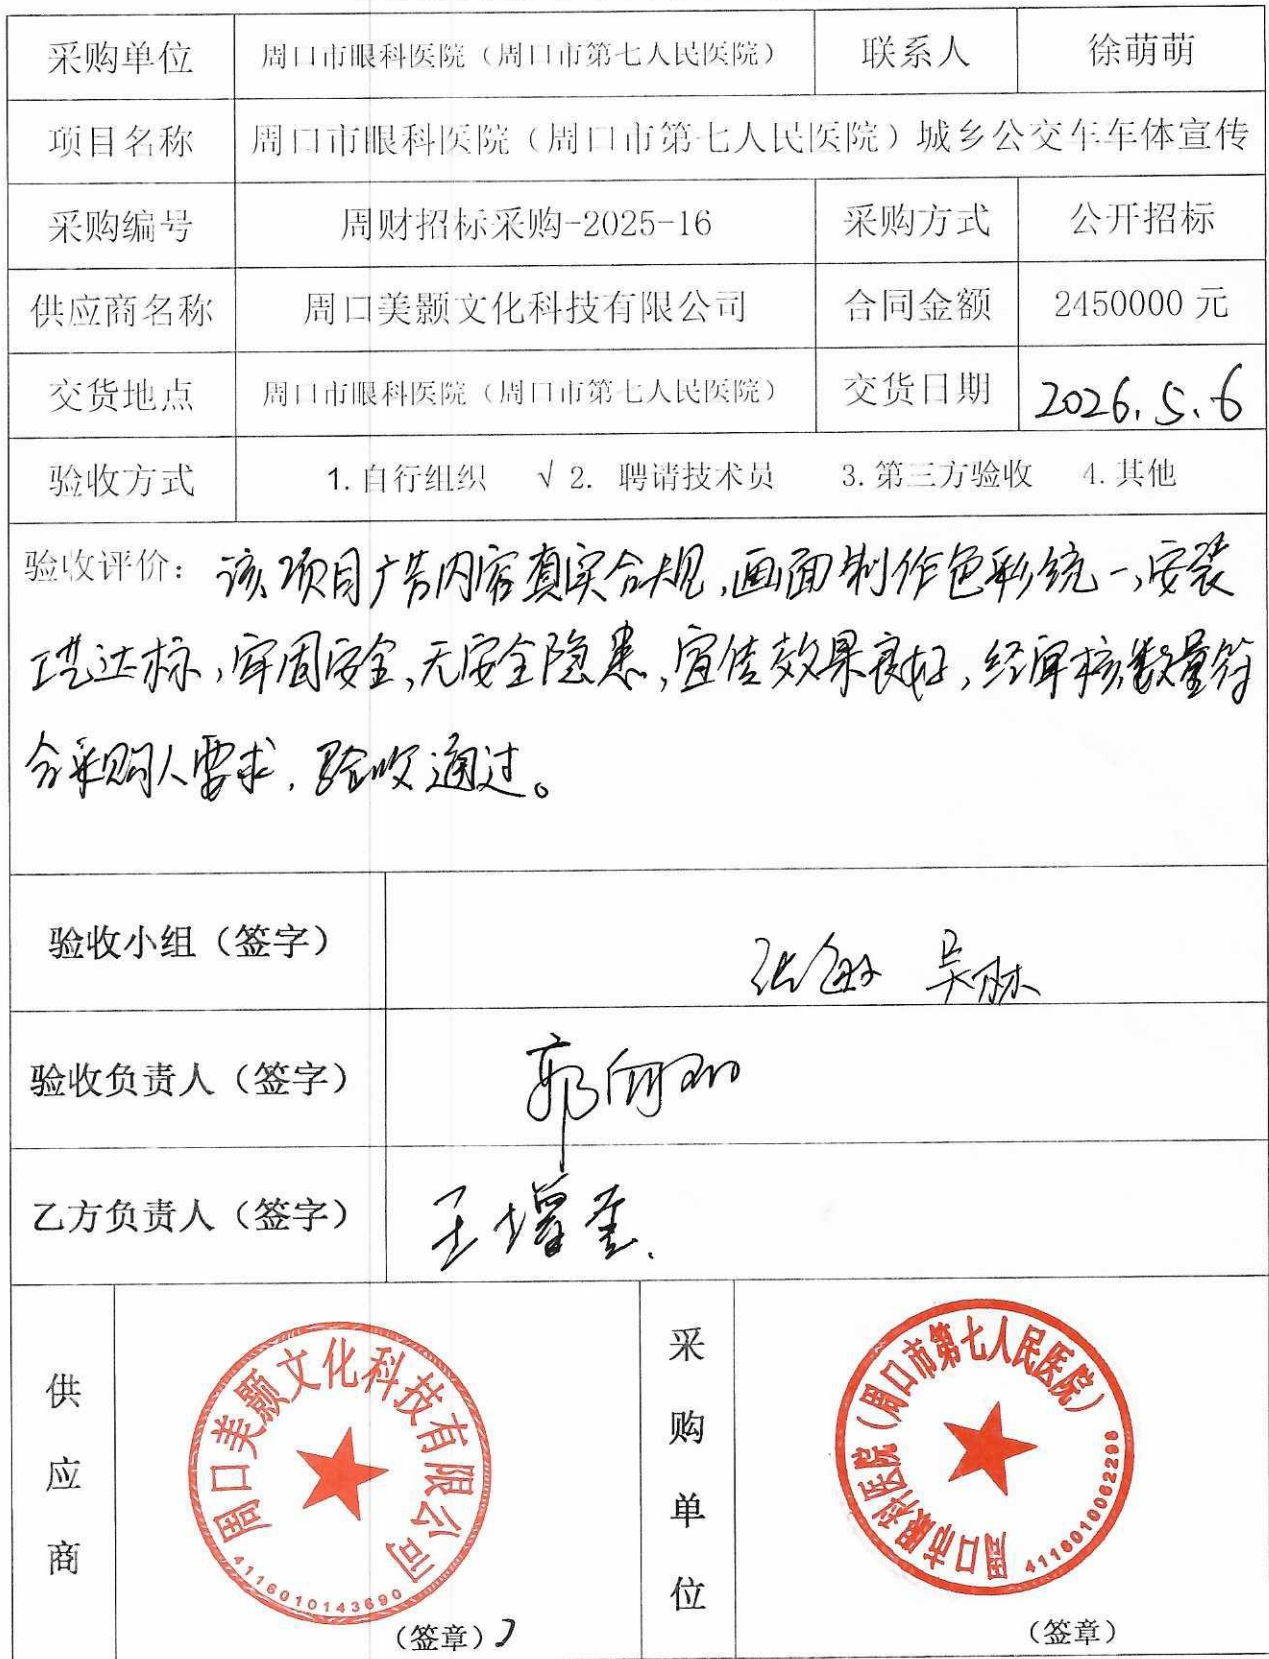 采购单位 周口市眼科医院（周口市第七人民医院） 联系人 徐萌萌
项目名称 周口市眼科医院（周口市第七人民医院）城乡公交车车体宣传
采购编号 周财招标采购-2025-16 采购方式 公开招标
供应商名称 周口美颢文化科技有限公司 合同金额 2450000 元
交货地点 周口市眼科医院（周口市第七人民医院） 交货日期 2026.5.6
验收方式 1.自行组织 √ 2. 聘请技术员 3.第三方验收 4.其他
验收评价：该项目广告内容真实合规,画面制作色彩统一,安装
工艺达标,牢固安全,无安全隐患,宣传效果良好,经审核数量符
合采购人要求,验收通过。
验收小组（签字） 张敏 吴琳
验收负责人（签字） 郭
乙方负责人（签字） 王增奎.
供应商
周口美颢文化科技有限公司
4116010143690
（签章）
采购单位
周口市眼科医院（周口市第七人民医院）
4116010062298
（签章）